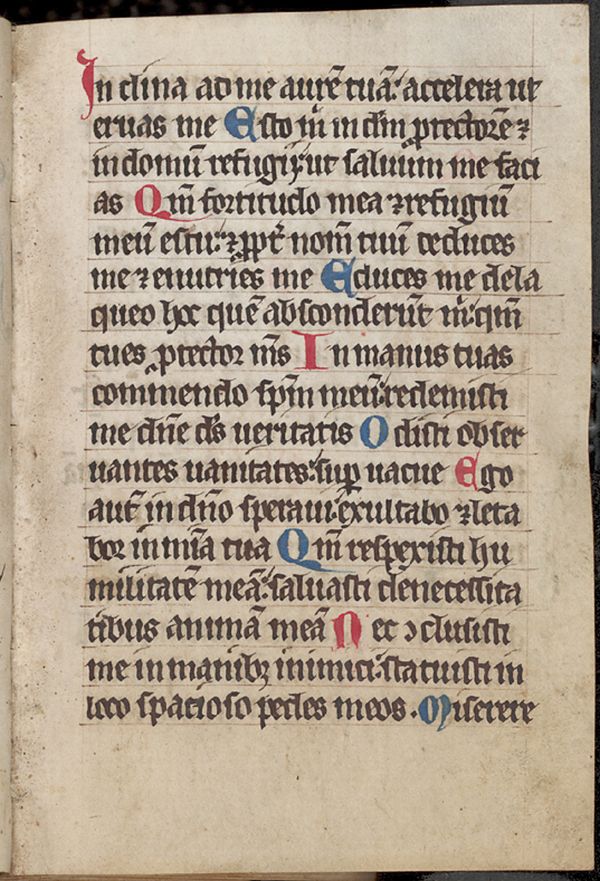 In clina ad me aurē tuā: accelera ut
eruas me Esto m̄ in dm̄ ꝓtectorē ⁊
in domū refugij: ut saluum me faci
as Qm̄ fortitudo mea ⁊ refugiū
meū es tu: ⁊ ꝓpt̄ nom̄ tuū deduces
me ⁊ enutries me Educes me de la
queo hoc quē absconderūt m̄: qm̄
tu es ꝓtector ms̄ In manus tuas
commendo sp̄m meū: redemisti
me dn̄e ds̄ ueritatis Odisti obser
uantes uanitates: suꝑ uacue Ego
aut̄ in dn̄o speraui: exultabo ⁊ leta
bor in mīa tua Qm̄ respexisti hu
militatē meā: saluasti de necessita
tibus animā meā Nec ↄclusisti
me in manibꝫ inimici: statuisti in
loco spatioso pedes meos. Miserere